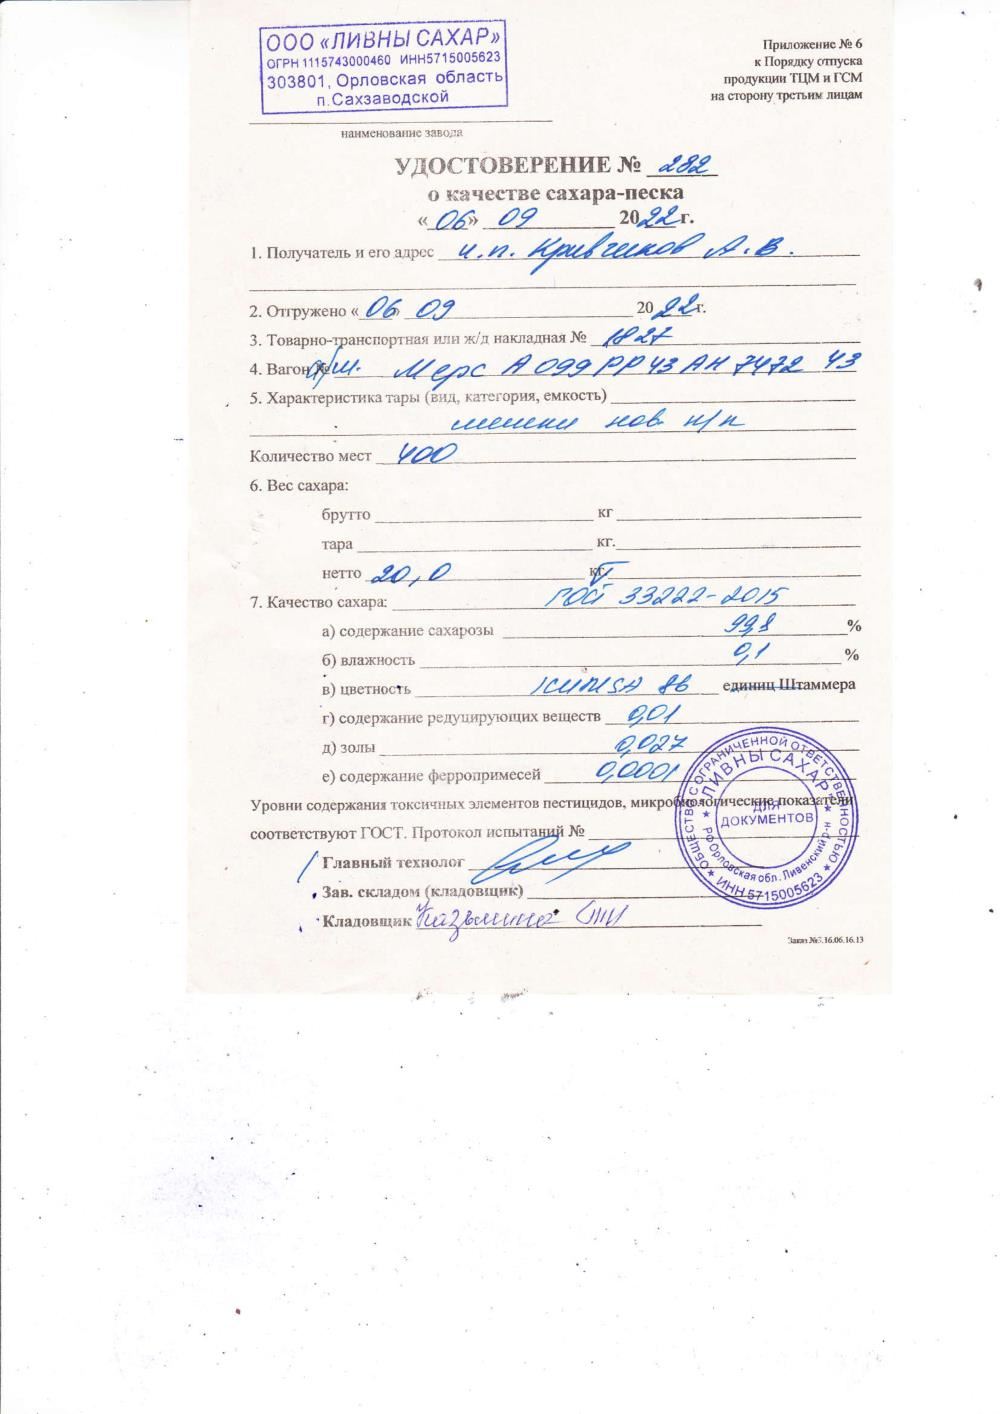 ООО «ЛИВНЫ САХАР»
ОГРН 1115743000460 ИНН5715005623
303801, Орловская область
п.Сахзаводской
Приложение № 6
к Порядку отпуска
продукции ТЦМ и ГСМ
на сторону третьим лицам
наименование завода
УДОСТОВЕРЕНИЕ № 282
о качестве сахара-песка
«06» 09 2022 г.
1. Получатель и его адрес и.п. Кривчиков А.В.
2. Отгружено «06» 09 2022 г.
3. Товарно-транспортная или ж/д накладная № 1827
4. Вагон № а/м. Мерс А 099 РР 43 АН 7472 43
5. Характеристика тары (вид, категория, емкость)
мешки нов п/п
Количество мест 400
6. Вес сахара:
брутто кг
тара кг.
нетто 20,0 кг т
7. Качество сахара: ГОСТ 33222-2015
а) содержание сахарозы 99,8 %
б) влажность 0,1 %
в) цветность ICUMSA 86 единиц Штаммера
г) содержание редуцирующих веществ 0,01
д) золы 0,027
е) содержание ферропримесей 0,0001
Уровни содержания токсичных элементов пестицидов, микробиологические показатели
соответствуют ГОСТ. Протокол испытаний №
Главный технолог
Зав. складом (кладовщик)
Кладовщик
ОБЩЕСТВО С ОГРАНИЧЕННОЙ ОТВЕТСТВЕННОСТЬЮ
"ЛИВНЫ САХАР"
ДЛЯ
ДОКУМЕНТОВ
РФ Орловская обл. Ливенский р-н
ИНН 5715005623
Заказ №3.16.06.16.13